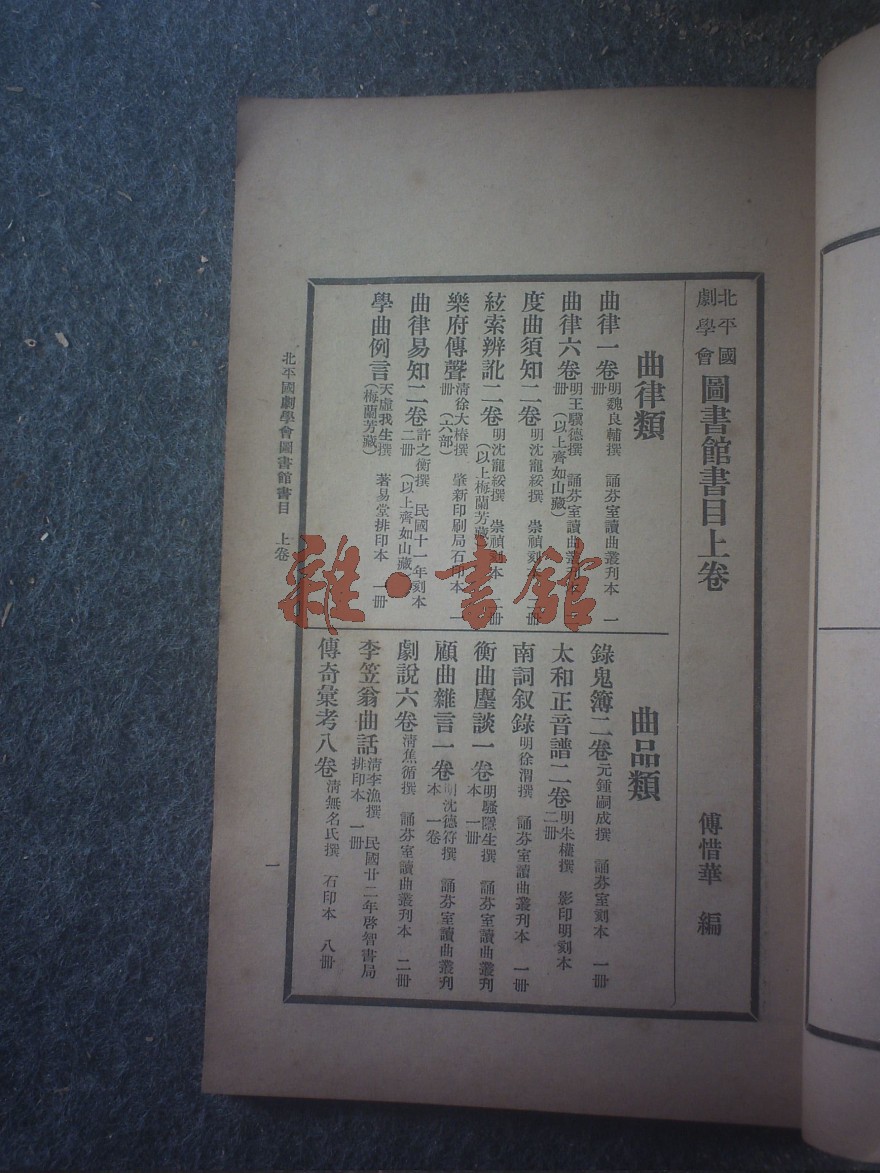 北平國劇學會圖書館書目上卷
傅惜華 編
曲律類
曲律一卷 明魏良輔撰 誦芬室讀曲叢刊本 一冊
曲律六卷 明王驥德撰 誦芬室讀曲叢刊本 冊 (以上齊如山藏)
度曲須知二卷 明沈寵綏撰 崇禎刻本 二冊
絃索辨訛二卷 明沈寵綏撰 崇禎刻本 冊 (以上梅蘭芳藏)
樂府傳聲 清徐大椿撰 肇新印刷局石印本 一冊 (六部)
曲律易知二卷 許之衡撰 民國十一年刻本 二冊 (以上齊如山藏
學曲例言 天虛我生撰 著易堂排印本 一冊 (梅蘭芳藏)
曲品類
錄鬼簿二卷 元鍾嗣成撰 誦芬室刻本 一冊
太和正音譜二卷 明朱權撰 影印明刻本 二冊
南詞叙錄 明徐渭撰 誦芬室讀曲叢刊本 一冊
衡曲麈談一卷 明騷隱生撰 誦芬室讀曲叢刊本 一冊
顧曲雜言一卷 明沈德符撰 誦芬室讀曲叢刊本 一卷
劇說六卷 清焦循撰 誦芬室讀曲叢刊本 二冊
李笠翁曲話 清李漁撰 民國廿二年啓智書局排印本 一冊
傳奇彙考八卷 清無名氏撰 石印本 八冊
北平國劇學會圖書館書目 上卷
一
雜·書館